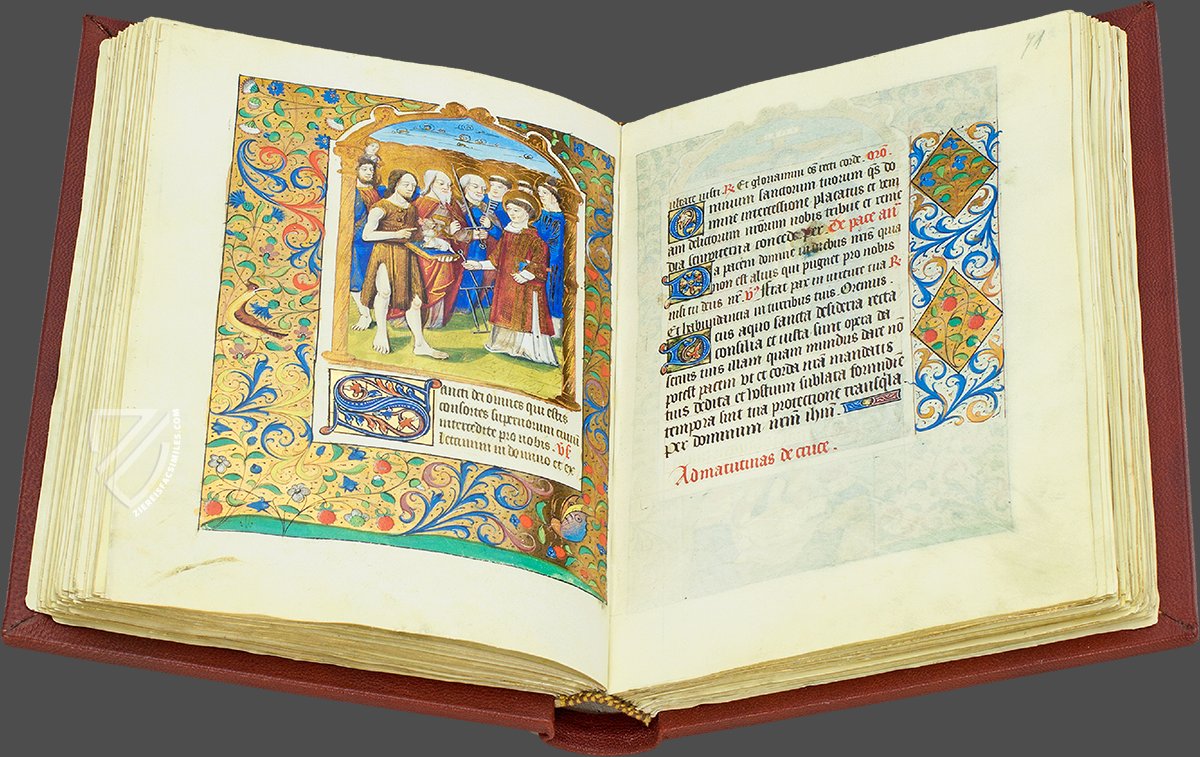 Sancti dei omnes qui estis
consortes supernorum civiũ
intercedite pro nobis. Vͬ
Letamini in domino et ex
71
ultate iusti R Et gloriamini oẽs recti corde. Orõ.
Omnium sanctorum tuorum qs̃ do
mine intercessione placatus et veni
am delictorum nr̃orum nobis tribue et reme
dia sempiterna concede per. De pace añ
Da pacem domine in diebus nr̃is quia
non est alius qui pugnet pro nobis
nisi tu deus nr̃. Vͬ Fiat pax in virtute tua R
Et habundancia in turribus tuis. Oremus.
Deus a quo sancta desideria recta
consilia et iusta sunt opera da
servis tuis illam quam mundus dare nõ
potest pacem ut et corda nr̃a mandatis
tuis dedita et hostium sublata formidĩe
tempora sint tua protectione tranq̃lla
per dominum nr̃m ihm̃.
Ad matutinas de cruce.
ZIEREIS FACSIMILES.COM